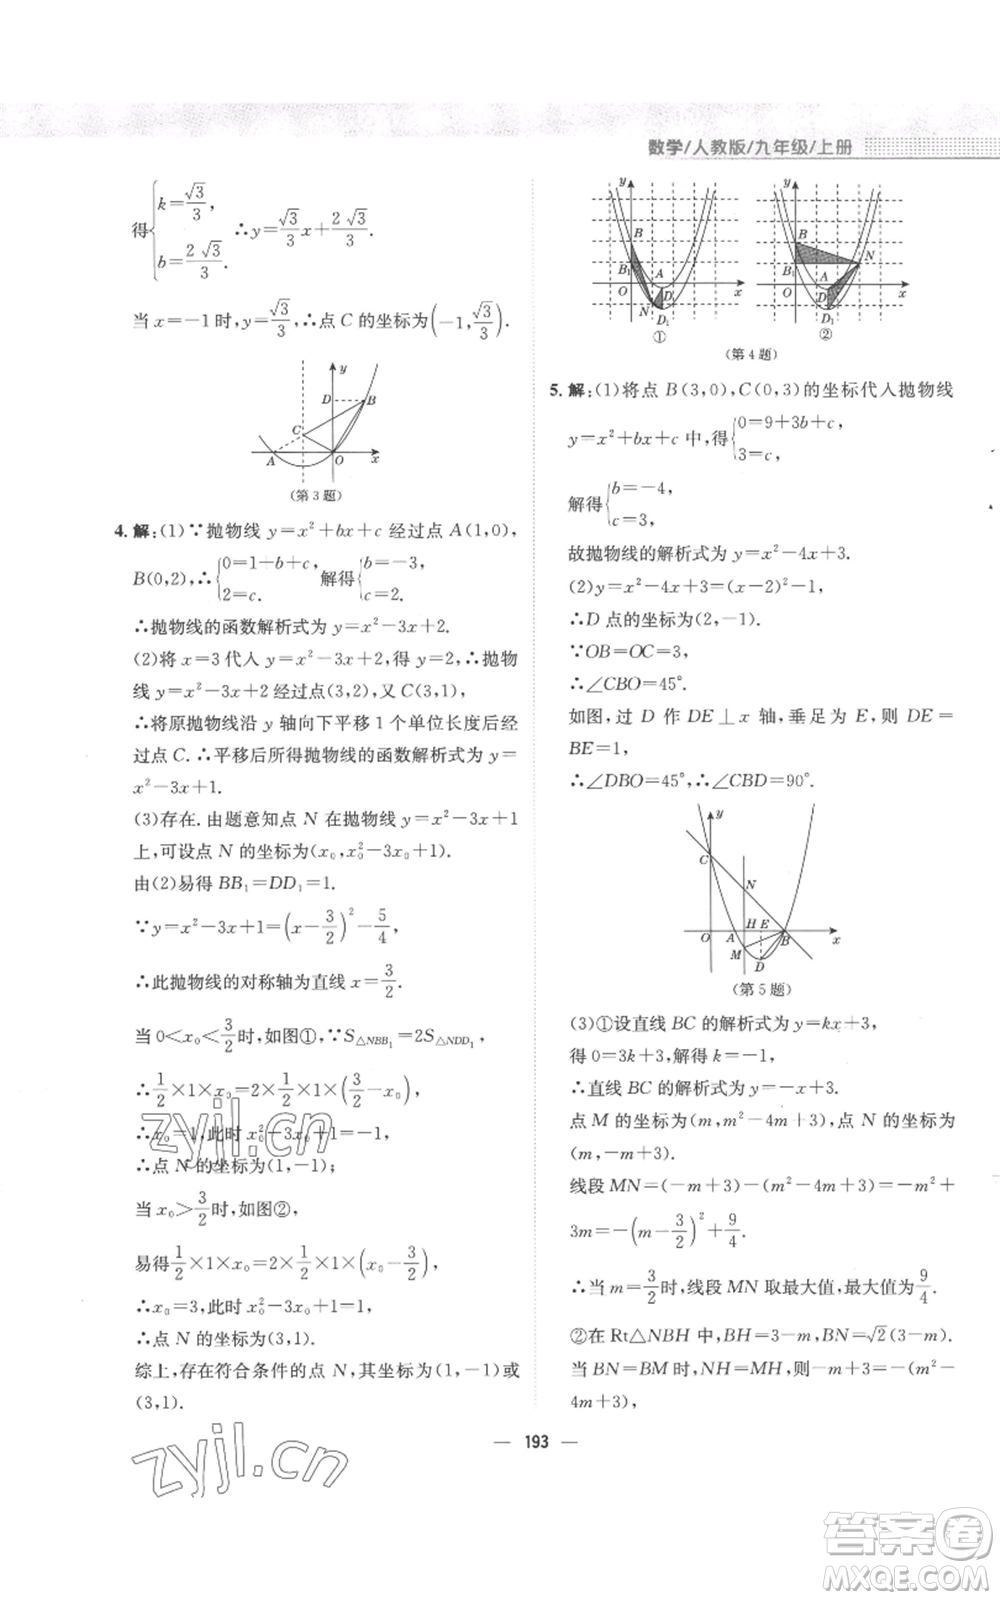 数学/人教版/九年级/上册
得{k=√3/3, b=2√3/3. ∴y=√3/3x+2√3/3.
当x=-1时,y=√3/3,∴点C的坐标为(-1,√3/3).
y
D
B
C
A
O
x
(第3题)
4.解:(1)∵抛物线y=x²+bx+c经过点A(1,0),
B(0,2),∴{0=1+b+c, 2=c. 解得{b=-3, c=2.
∴抛物线的函数解析式为y=x²-3x+2.
(2)将x=3代入y=x²-3x+2,得y=2,∴抛物
线y=x²-3x+2经过点(3,2),又C(3,1),
∴将原抛物线沿y轴向下平移1个单位长度后经
过点C.∴平移后所得抛物线的函数解析式为y=
x²-3x+1.
(3)存在.由题意知点N在抛物线y=x²-3x+1
上,可设点N的坐标为(x₀,x₀²-3x₀+1).
由(2)易得BB₁=DD₁=1.
∵y=x²-3x+1=(x-3/2)²-5/4,
∴此抛物线的对称轴为直线x=3/2.
当0<x₀<3/2时,如图①,∵S△NBB₁=2S△NDD₁,
∴1/2×1×x₀=2×1/2×1×(3/2-x₀),
∴x₀=1,此时x₀²-3x₀+1=-1,
∴点N的坐标为(1,-1);
当x₀>3/2时,如图②,
易得1/2×1×x₀=2×1/2×1×(x₀-3/2),
∴x₀=3,此时x₀²-3x₀+1=1,
∴点N的坐标为(3,1).
综上,存在符合条件的点N,其坐标为(1,-1)或
(3,1).
y
B
B₁
A
D
O
N
D₁
x
①
y
B
B₁
N
A
D
O
D₁
x
②
(第4题)
5.解:(1)将点B(3,0),C(0,3)的坐标代入抛物线
y=x²+bx+c中,得{0=9+3b+c, 3=c,
解得{b=-4, c=3,
故抛物线的解析式为y=x²-4x+3.
(2)y=x²-4x+3=(x-2)²-1,
∴D点的坐标为(2,-1).
∵OB=OC=3,
∴∠CBO=45°.
如图,过D作DE⊥x轴,垂足为E,则DE=
BE=1,
∴∠DBO=45°,∴∠CBD=90°.
y
C
N
H E
O A B x
M
D
(第5题)
(3)①设直线BC的解析式为y=kx+3,
得0=3k+3,解得k=-1,
∴直线BC的解析式为y=-x+3.
点M的坐标为(m,m²-4m+3),点N的坐标为
(m,-m+3).
线段MN=(-m+3)-(m²-4m+3)=-m²+
3m=-(m-3/2)²+9/4.
∴当m=3/2时,线段MN取最大值,最大值为9/4.
②在Rt△NBH中,BH=3-m,BN=√2(3-m).
当BN=BM时,NH=MH,则-m+3=-(m²-
4m+3),
193
zyjl.cn
zyjl.cn
答案卷
MXQE.COM